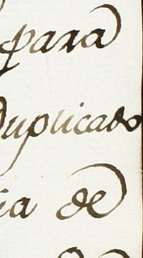 para
duplicado
ia de